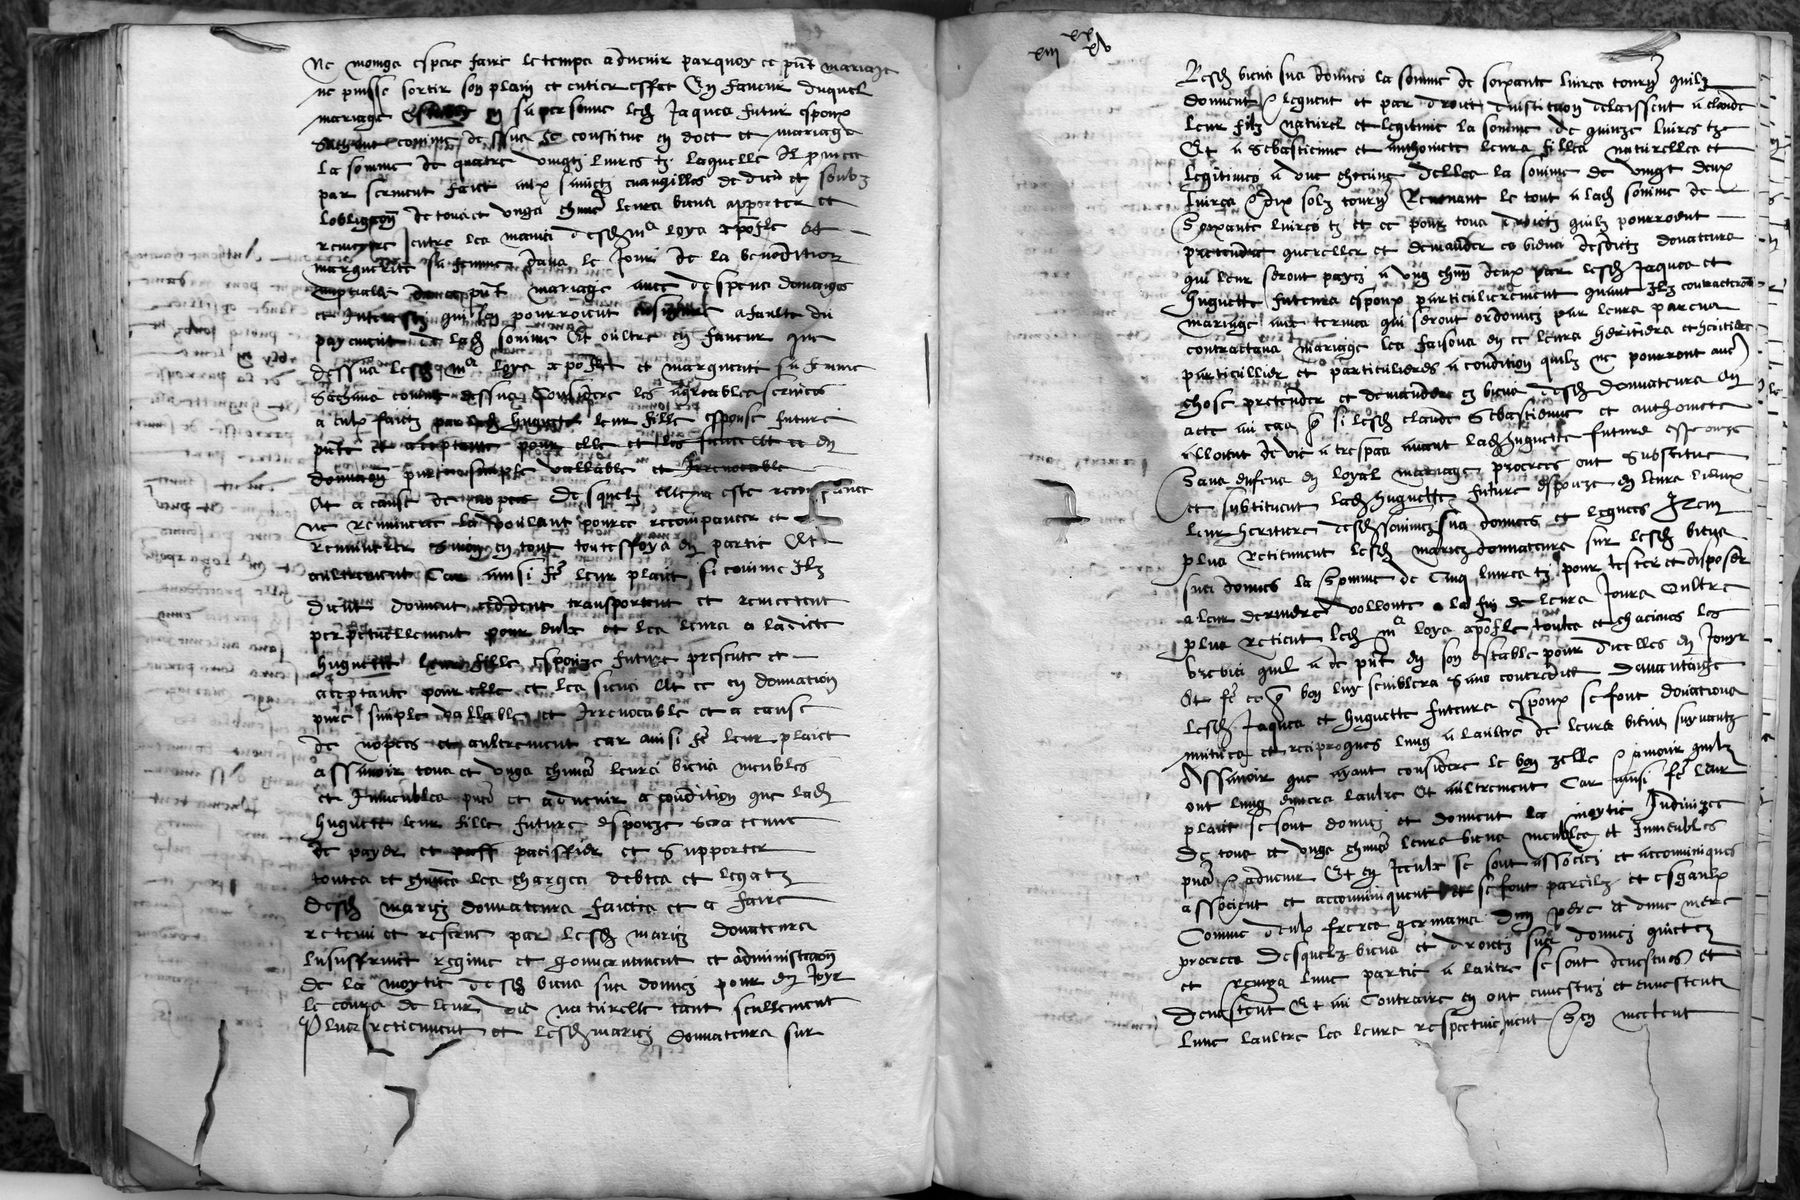 ne moings espere faire le temps advenir parquoy ce pnt mariage
ne puisse sortir son plain et entier effet En faveur duquel
mariage en sa personne led Jaques futur espoux
comme dessus se constitue en doct et mariage
la somme de quatre vingtz livres tz laquelle Il promect
par serment faict aulx sainctz evangilles de dieu et soubz
lobligaon de tous et ungs chuns leurs biens apporter et
remectre entre les mains desd me loys apostle Et
marguerite sa femme dans le jour de la benediction
nuptialle pnt mariage avec despens domaiges
et Interestz quilz en pourroient a faulte du
payement de lad somme Et oultre en faveur que
dessus lesd me loys apostle et marguerite sa femme
sachans comme dessus Considere les agreables services
a eulx faictz par lad huguette leur fille espouse future
pnte et aceptante pour elle et les siens Et ce en
donnaon pure simple vallable et Irrevocable
Et a cause de nopces desquelz
ne remunerer la voulant pource recompancer et
remunerer sinon en tout touteffoys en partie Et
aultrement Car ainsi fe leur plaict si comme Ilz
dient donnent cedent transportent et remectent
perpetuellement pour eulx et les leurs a ladicte
huguette leur fille espouze future presente et
aceptante pour elle et les siens Et ce en donnation
pure simple vallable et Irrevocable et a cause
de nopces et aultrement car ainsi fe leur plaict
assavoir tous et ungs chuns leurs biens meubles
et Inmeubles pns et advenir a condition que lad
huguette leur fille future espouze sera tenue
de payer et paciffier et supporter
toutes et chunes les charges debtes et legatz
desd mariez donnateurs faictes et a faire
retenu et reserve par lesd mariez donateurs
lusuffruict regime et gouvernement et administraon
de la moytie desd biens sus donnez pour en Joyr
le cours de leur vie naturelle tant seullement
Plus retiennent et lesd mariez donnateurs sur
xiii xx xv
lesd biens sus donnes la somme de soixante livres tourn quilz
donnent leguent et par droict dinstitaon delaissent a claude
leur filz naturel et legitime la somme de quinze livres tz
Et a sebastienne et anthoinete leurs filles naturelles et
legitimes a une checune delles la somme de vingt deux
livres dix solz tourn Revenant le tout a lad somme de
soixante livres tz et ce pour tous droictz quilz pourroient
pretendre quereller et demander es biens desdictz donateurs
qui leur seront payez a ung chun deux par lesd Jaques et
huguette futeurs espoux particulierement quant Ilz contracteront
mariage aux termes qui seront ordonnez par leurs parens
contractans mariage les faisons en ce leurs heritiers et heritiere
particullier et particulieres a condition quilz ne pourront aue
chose pretendre et demander es biens desd donnateurs En
acte au cas si lesd claude sebastienne et anthoinete
alloient de vie a trespas avant lad huguette future espouze
Sans enfens en loyal mariage procrees ont substitue
et substituent lad huguette future espouze en leurs lieux
leur heritiere desd sommes sus donnes et legues Item
plus retiennent lesd mariez donnateurs sur lesd biens
sus donnes la somme de Cinq livres tz pour tester et disposer
a leur derniere vollonte a la fin de leurs Jours Oultre
plus retient led me loys apostle toutes et chacunes les
brebis quil a de pnt en son estable pour dicelles en Jouyr
Et fe ce bon luy semblera sans contredict Davantaige
lesd Jaques et huguette futeurs espoux se font donations
mutues et reciproques lung a laultre de leurs biens suyvantz
Assavoir que ayant considere le bon zelle amour quilz
ont lung envers laultre Et aultrement Car ainsi fe leur
plaict se sont donnez et donnent la moytie Indivizee
De tous et ungs chuns leurs biens meubles et Inmeubles
pns advenir Et en Iceulx se sont associez et accomuniques
associent et accomuniquent se font pareilz et esgaulx
Comme deulx freres germains dung pere et dune mere
procrees Desquelz biens et droictz sus donnez quictez
et remys lune partie a laultre se sont devestues et
Devestent Et au Contraire en ont envestuz et envestent
lune laultre les leurs respectivement Sen mectent